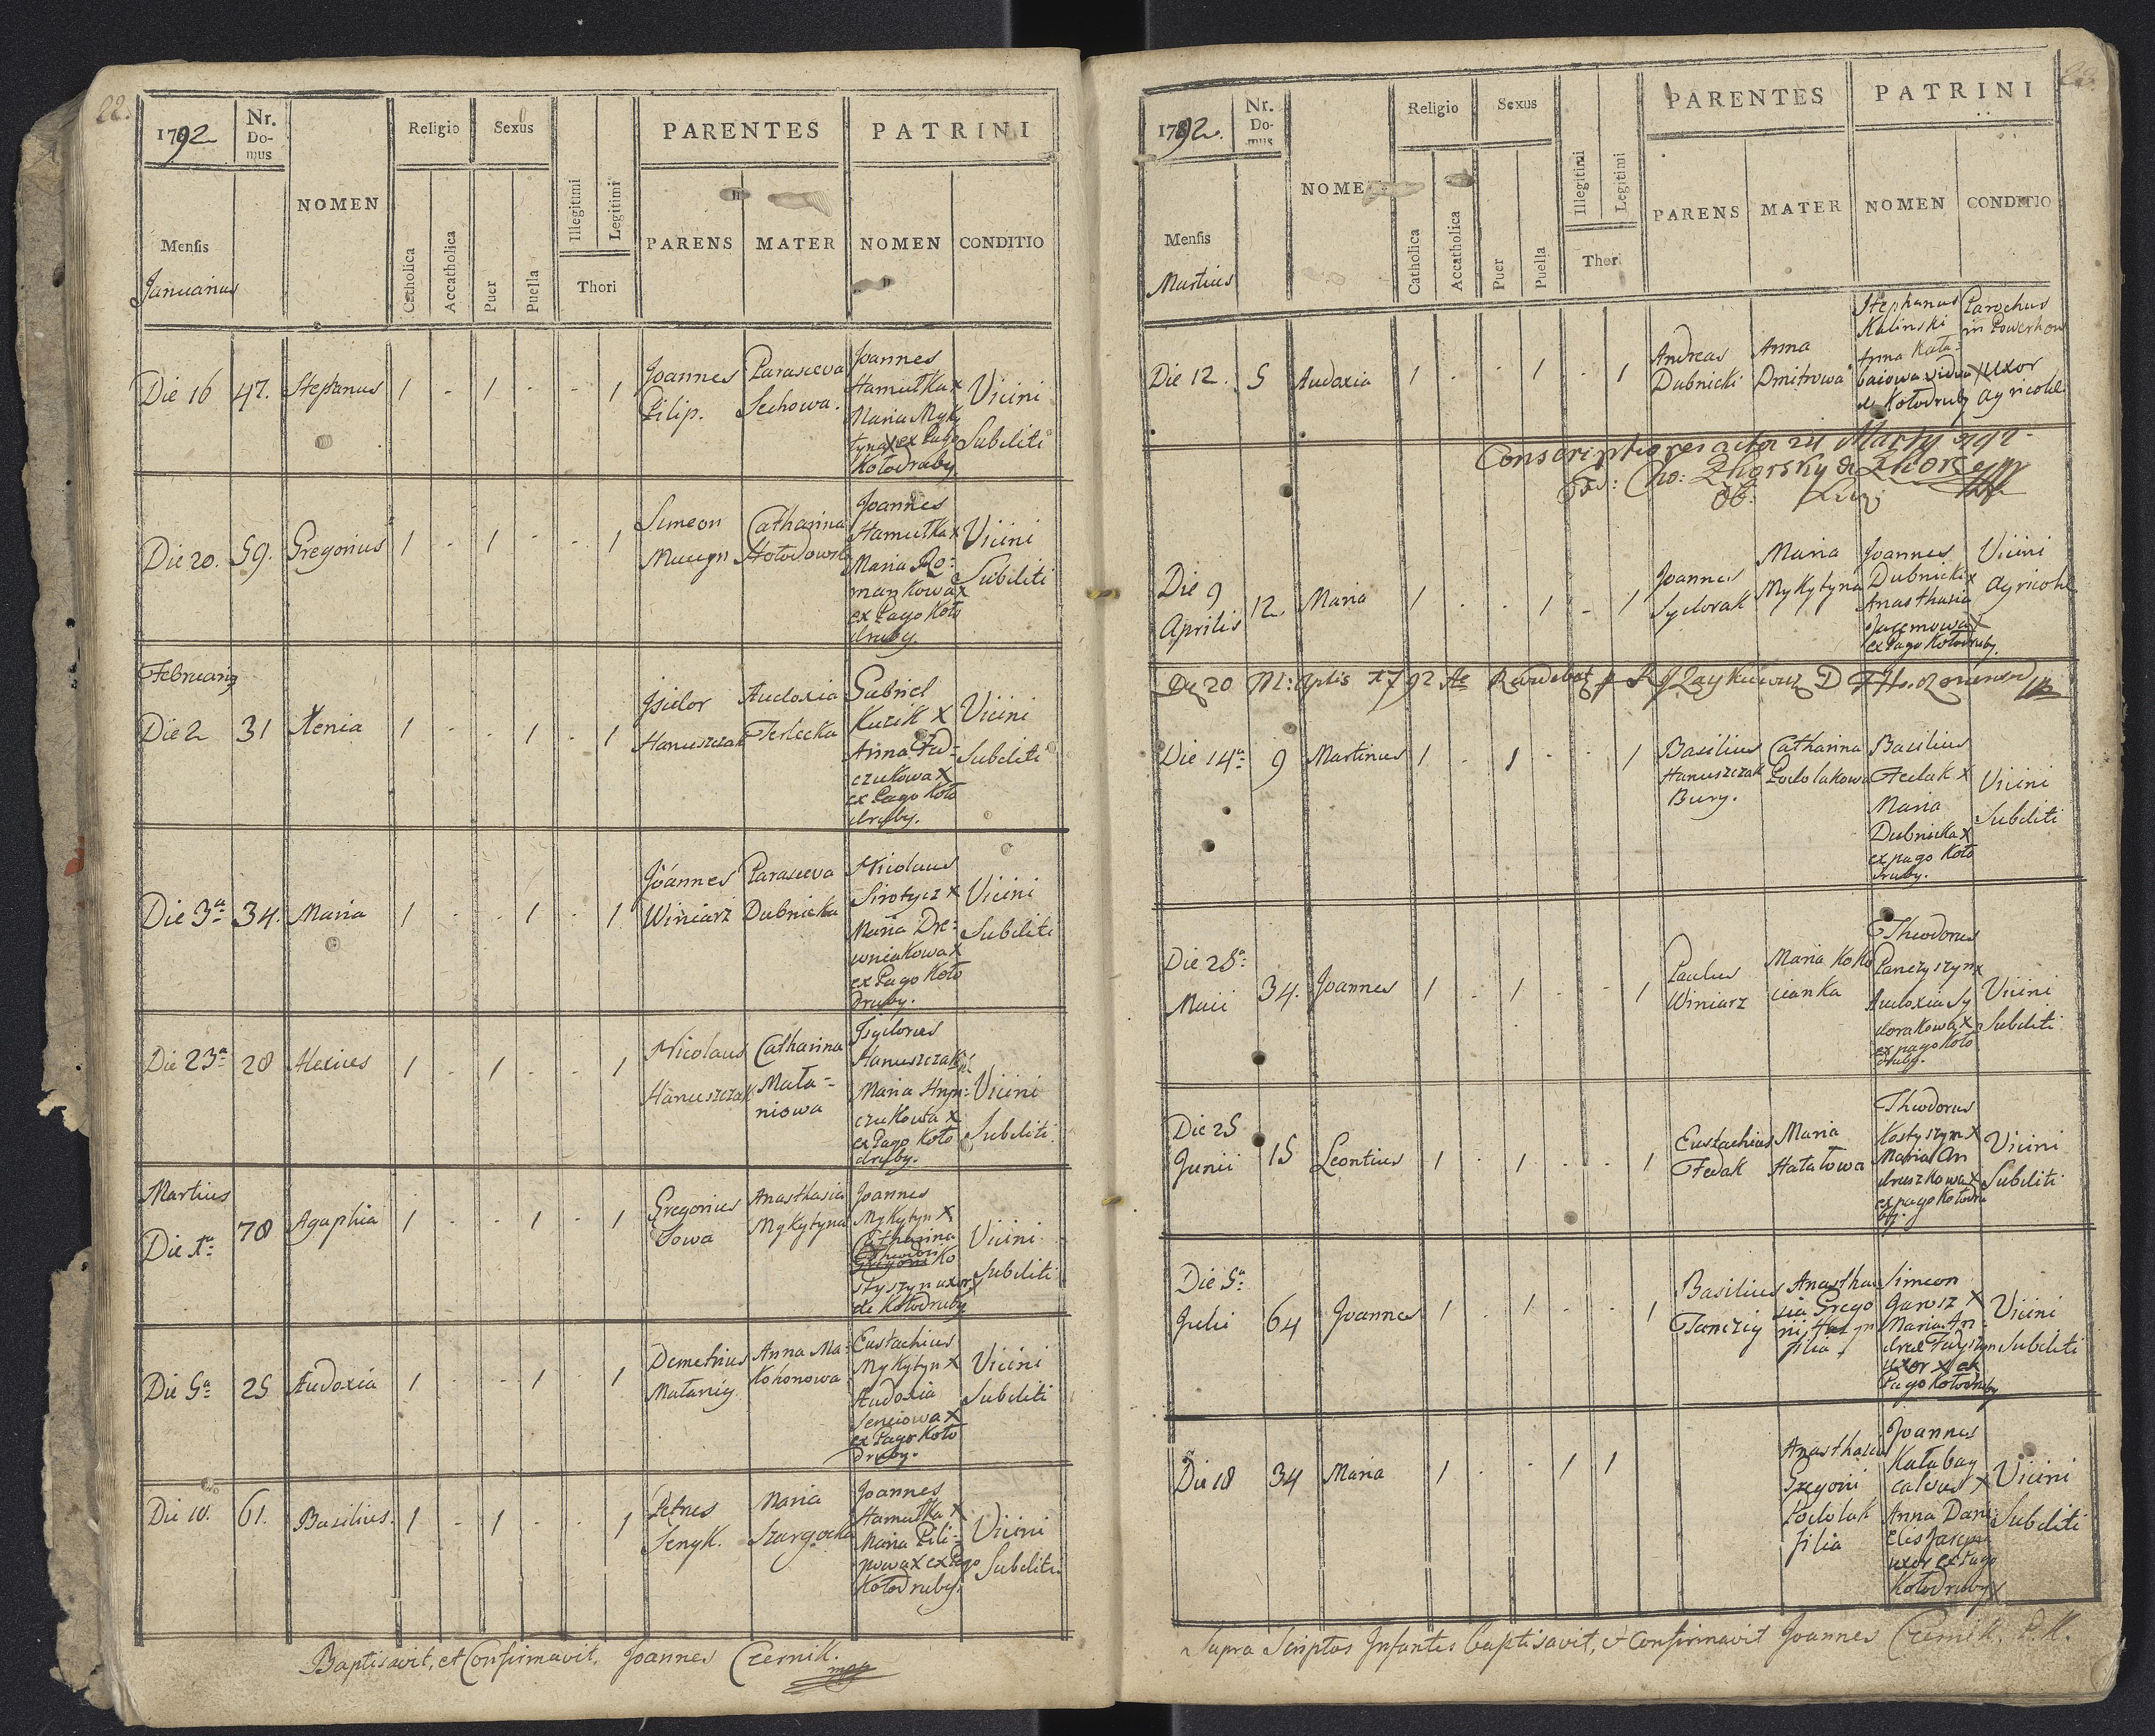 22.
1792
Nr. Domus
NOMEN
Religio
Sexus
PARENTES
PATRINI
Mensis
Januarius
Catholica
Accatholica
Puer
Puella
Illegitimi
Legitimi
Thori
PARENS
MATER
NOMEN
CONDITIO
Die 16 47. Stephanus 1 - 1 - - 1
Joannes
Pilip.
Parasceva
Sechowa.
Joannes
Hamułka x
Maria Myky
tyna x ex Pago
Kołodruby
Vicini
Subditi
Die 20. 59. Gregorius 1 - 1 - - 1
Simeon
Catharina
Hołodowska
Joannes
Hamułka x
Maria Ro:
mankowa x
ex Pago Koło
druby.
Vicini
Subditi
Februarij
Die 2 31 Xenia 1 - - 1 - 1
Isidor
Hanuszczak
Audoxia
Terlecka
Gabriel
Kuzik x
Anna Fed=
czukowa x
ex Pago Koło
druby.
Vicini
Subditi
Die 3ª 34. Maria 1 - - 1 - 1
Joannes
Winiarz
Parasceva
Dubnicka
Nicolaus
Sirotycz x
Maria Dre:
wniakowa x
ex Pago Koło
druby.
Vicini
Subditi
Die 23ª 28 Alexius 1 - 1 - - 1
Nicolaus
Hanuszczak
Catharina
Mała=
niowa
Isydorus
Hanuszczak x
Maria Hryn:
czukowa x
ex Pago Koło
druby.
Vicini
Subditi
Martius
Die 1ª 78 Agaphia 1 - - 1 - 1
Gregorius
Sowa
Anasthasia
Mykytyna
Joannes
Mykytyn x
Catharina
Theodori Ko
styszyn uxor x
de Kołodruby
Vicini
Subditi
Die 5ª 25 Audoxia 1 - - 1 - 1
Demetrius
Małaniy
Anna Ma:
kohonowa
Eustachius
Mykytyn x
Audoxia
Senciowa x
ex Pago Koło
druby.
Vicini
Subditi
Die 10. 61. Basilius. 1 - 1 - - 1
Petrus
Senyk.
Maria
Szargocka
Joannes
Hamułka x
Maria Pili=
powa x ex Pago
Kołodruby.
Vicini
Subditi.
Baptisavit, et Confirmavit, Joannes Czernik.
mpp
1792.
Nr. Domus
NOMEN
Religio
Sexus
PARENTES
PATRINI
Mensis
Martius
Catholica
Accatholica
Puer
Puella
Illegitimi
Legitimi
Thori
PARENS
MATER
NOMEN
CONDITIO
Die 12. 5 Audoxia 1 - - 1 - 1
Andreas
Dubnicki
Anna
Dmitrowa
Stephanus
Kalinski
Anna Kała=
baiowa vidua x
de Kołodruby
Parochus
in Powerhow
uxor
Agricolæ
Die 9
Aprilis 12. Maria 1 - - 1 - 1
Joannes
Sydorak
Maria
Mykytyna
Joannes
Dubnicki x
Anasthasia
Jaremowa x
ex Pago Kołodruby.
Vicini
Agricolæ
Die 14ª 9 Martinus 1 - 1 - - 1
Basilius
Hanuszczak
Bury.
Catharina
Podolakowa
Basilius
Fedak x
Maria
Dubnicka x
ex pago Koło
druby.
Vicini
Subditi
Die 28ª
Maii 34. Joannes 1 - 1 - - 1
Paulus
Winiarz
Maria Koko
cianka
Theodorus
Panczyszyn x
Audoxia Sy
dorakowa x
ex pago Koło
druby.
Vicini
Subditi
Die 25
Junii 15 Leontius 1 - 1 - - 1
Eustachius
Fedak
Maria
Hatałowa
Theodorus
Kostyszyn x
Maria An
druszkowa x
ex pago Kołodru
by.
Vicini
Subditi
Die 5ª
Julii 64 Joannes 1 - 1 - - 1
Basilius
Anastha
sia Grego
rij
filia
Simeon
Jarosz x
Maria An:
dreæ Fedyszyn
uxor x ex
Pago Kołodruby
Vicini
Subditi
Die 18 34 Maria 1 - - 1 1
Anasthasia
Gregorii
Podolak
filia
Joannes
Kałabay
calvus x
Anna Dani
elis
uxor ex Pago
Kołodruby x
Vicini
Subditi
Supra Scriptos Infantes baptisavit, et Confirmavit Joannes Czernik. P. K.